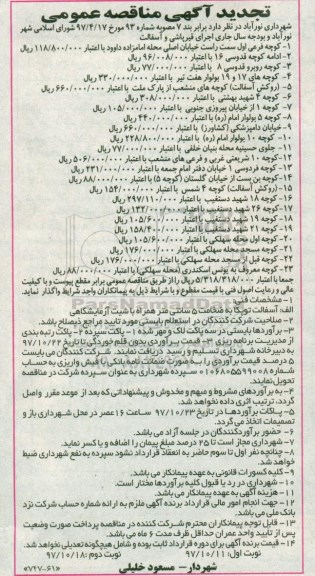 تجدید آگهی مناقصه عمومی
شهرداری نورآباد در نظر دارد برابر بند ۷ مصوبه شماره ۹۳ مورخ ۹۷/۴/۱۷ شورای اسلامی شهر
نورآباد و بودجه سال جاری اجرای قیرپاشی و آسفالت
۱- کوچه فرعی اول سمت راست خیابان اصلی محله امامزاده داوود با اعتبار ۱۱۸/۸۰۰/۰۰۰ ریال
۲- ادامه کوچه قدوسی ۱۶ با اعتبار ۹۶/۰۰۸/۰۰۰ ریال
۳- کوچه روبرو قدوسی ۸ با اعتبار ۷۷/۰۰۰/۰۰۰ ریال
۴- کوچه های ۱۷ و ۱۹ بولوار هفت تیر با اعتبار ۳۳۰/۰۰۰/۰۰۰ ریال
۵- (روکش آسفالت) کوچه های منشعب از پارک ملت با اعتبار ۶۶۰/۰۰۰/۰۰۰ ریال
۶- کوچه ۴ شهید بهشتی با اعتبار ۳۰۸/۰۰۰/۰۰۰ ریال
۷- کوچه ۱ از خیابان پیروزی جنوبی با اعتبار ۱۰۵/۰۰۰/۰۰۰ ریال
۸- کوچه ۵ بولوار امام (ره) با اعتبار ۴۴۰/۰۰۰/۰۰۰ ریال
۹- خیابان دامپزشکی (کشاورز) با اعتبار ۶۶۰/۰۰۰/۰۰۰ ریال
۱۰- کوچه ۱۰ بولوار امام (ره) با اعتبار ۲۲۸/۸۰۰/۰۰۰ ریال
۱۱- جلوی حسینیه محله بنیان خلفی با اعتبار ۷۷/۰۰۰/۰۰۰ ریال
۱۲- کوچه ۱۰ شریعتی غربی و فرعی های منشعب با اعتبار ۵۰۶/۰۰۰/۰۰۰ ریال
۱۳- کوچه فردوسی ۱ خیابان دفتر امام جمعه با اعتبار ۲۳۱/۰۰۰/۰۰۰ ریال
۱۴- کوچه بن بست از خیابان گلستان (کوچه ۵) با اعتبار ۸۸/۰۰۰/۰۰۰ ریال
۱۵- (روکش آسفالت) کوچه ۴ شمس با اعتبار ۱۵۴/۰۰۰/۰۰۰ ریال
۱۶- کوچه ۱۸ شهید دستغیب با اعتبار ۲۹۷/۱۱۰/۰۰۰ ریال
۱۷- کوچه ۲۶ شهید دستغیب با اعتبار ۱۳۲/۰۰۰/۰۰۰ ریال
۱۸- کوچه ۱۹ شهید دستغیب با اعتبار ۱۰۵/۶۰۰/۰۰۰ ریال
۱۹- کوچه ۲۱ شهید دستغیب با اعتبار ۱۵۸/۴۰۰/۰۰۰ ریال
۲۰- کوچه اول محله سهلکی با اعتبار ۱۰۵/۶۰۰/۰۰۰ ریال
۲۱- کوچه مسجد محله سهلکی با اعتبار ۱۷۶/۰۰۰/۰۰۰ ریال
۲۲- کوچه قبل از مسجد محله سهلکی با اعتبار ۱۷۶/۰۰۰/۰۰۰ ریال
۲۳- کوچه معروف به یونس اسکندری (محله سهلکی) با اعتبار ۸۸/۰۰۰/۰۰۰ ریال
جمعا با اعتبار ۵/۳۱۸/۳۱۸/۰۰۰ ریال را از طریق مناقصه عمومی برابر مقطع پیوست و با کیفیت
عالی و رعایت اصول فنی با قیمت مقطوع و با شرایط ذیل به پیمانکاران واجد شرایط واگذار نماید.
۱- مشخصات فنی:
الف- آسفالت توپکا به ضخامت ۵ سانتی متر همراه با شیت آزمایشگاهی
۲- صلاحیت شرکت کنندگان در استعلام بایستی مورد تایید مراجع ذیصلاح باشد.
۳- برآوردها بایستی در سه پاکت لاک و مهر شده ۱- پاکت سپرده ۲- پاکت رتبه بندی
از مدیریت برنامه ریزی ۳- قیمت برآوردی بدون قلم خوردگی تا تاریخ ۹۷/۱۰/۲۲
به دبیرخانه شهرداری تسلیم و رسید دریافت نمایند. شرکت کنندگان می بایست
۵ درصد قیمت برآوردی را به صورت ضمانت نامه بانکی یا فیش واریزی به حساب
شماره ۰۱۰۶۸۰۵۵۹۹۰۰۸ سپرده شهرداری به عنوان سپرده شرکت در مناقصه
تحویل نمایند.
۴- به برآوردهای مشروط و مبهم و مخدوش و پیشنهاداتی که بعد از موعد مقرر واصل
گردد، ترتیب اثری داده نخواهد شد.
۵- پاکت برآوردها در تاریخ ۹۷/۱۰/۲۳ ساعت ۱۶ عصر در محل شهرداری باز و
تصمیمات اتخاذ می گردد.
۶- حضور برآوردکنندگان در جلسه آزاد می باشد.
۷- شهرداری مجاز است تا ۲۵ درصد مبلغ پیمان را اضافه و یا کسر نماید.
۸- چنانچه نفر اول تا سوم حاضر به انعقاد قرارداد نشود سپرده به نفع شهرداری ضبط
خواهد شد.
۹- کلیه کسورات قانونی به عهده پیمانکار می باشد.
۱۰- شهرداری در رد یا قبول کلیه برآوردها مختار است.
۱۱- هزینه آگهی به عهده پیمانکار می باشد.
۱۲- جهت انجام امور مالی قرارداد برنده آگهی ملزم به ارائه شماره حساب شرکت نزد
بانک ملی می باشد.
۱۳- قابل توجه پیمانکاران محترم شرکت کننده در مناقصه پرداخت صورت وضعیت
پس از تأیید واحد عمران حداقل ظرف مدت ۶ ماه می باشد.
۱۴- قیمت برنده آگهی برای دوره قرارداد ثابت بوده و شامل هیچگونه تعدیلی نخواهد شد.
نوبت اول: ۹۷/۱۰/۱۱ نوبت دوم: ۹۷/۱۰/۱۸
شهردار- مسعود خلیلی
«۷۴۷-۶۱»